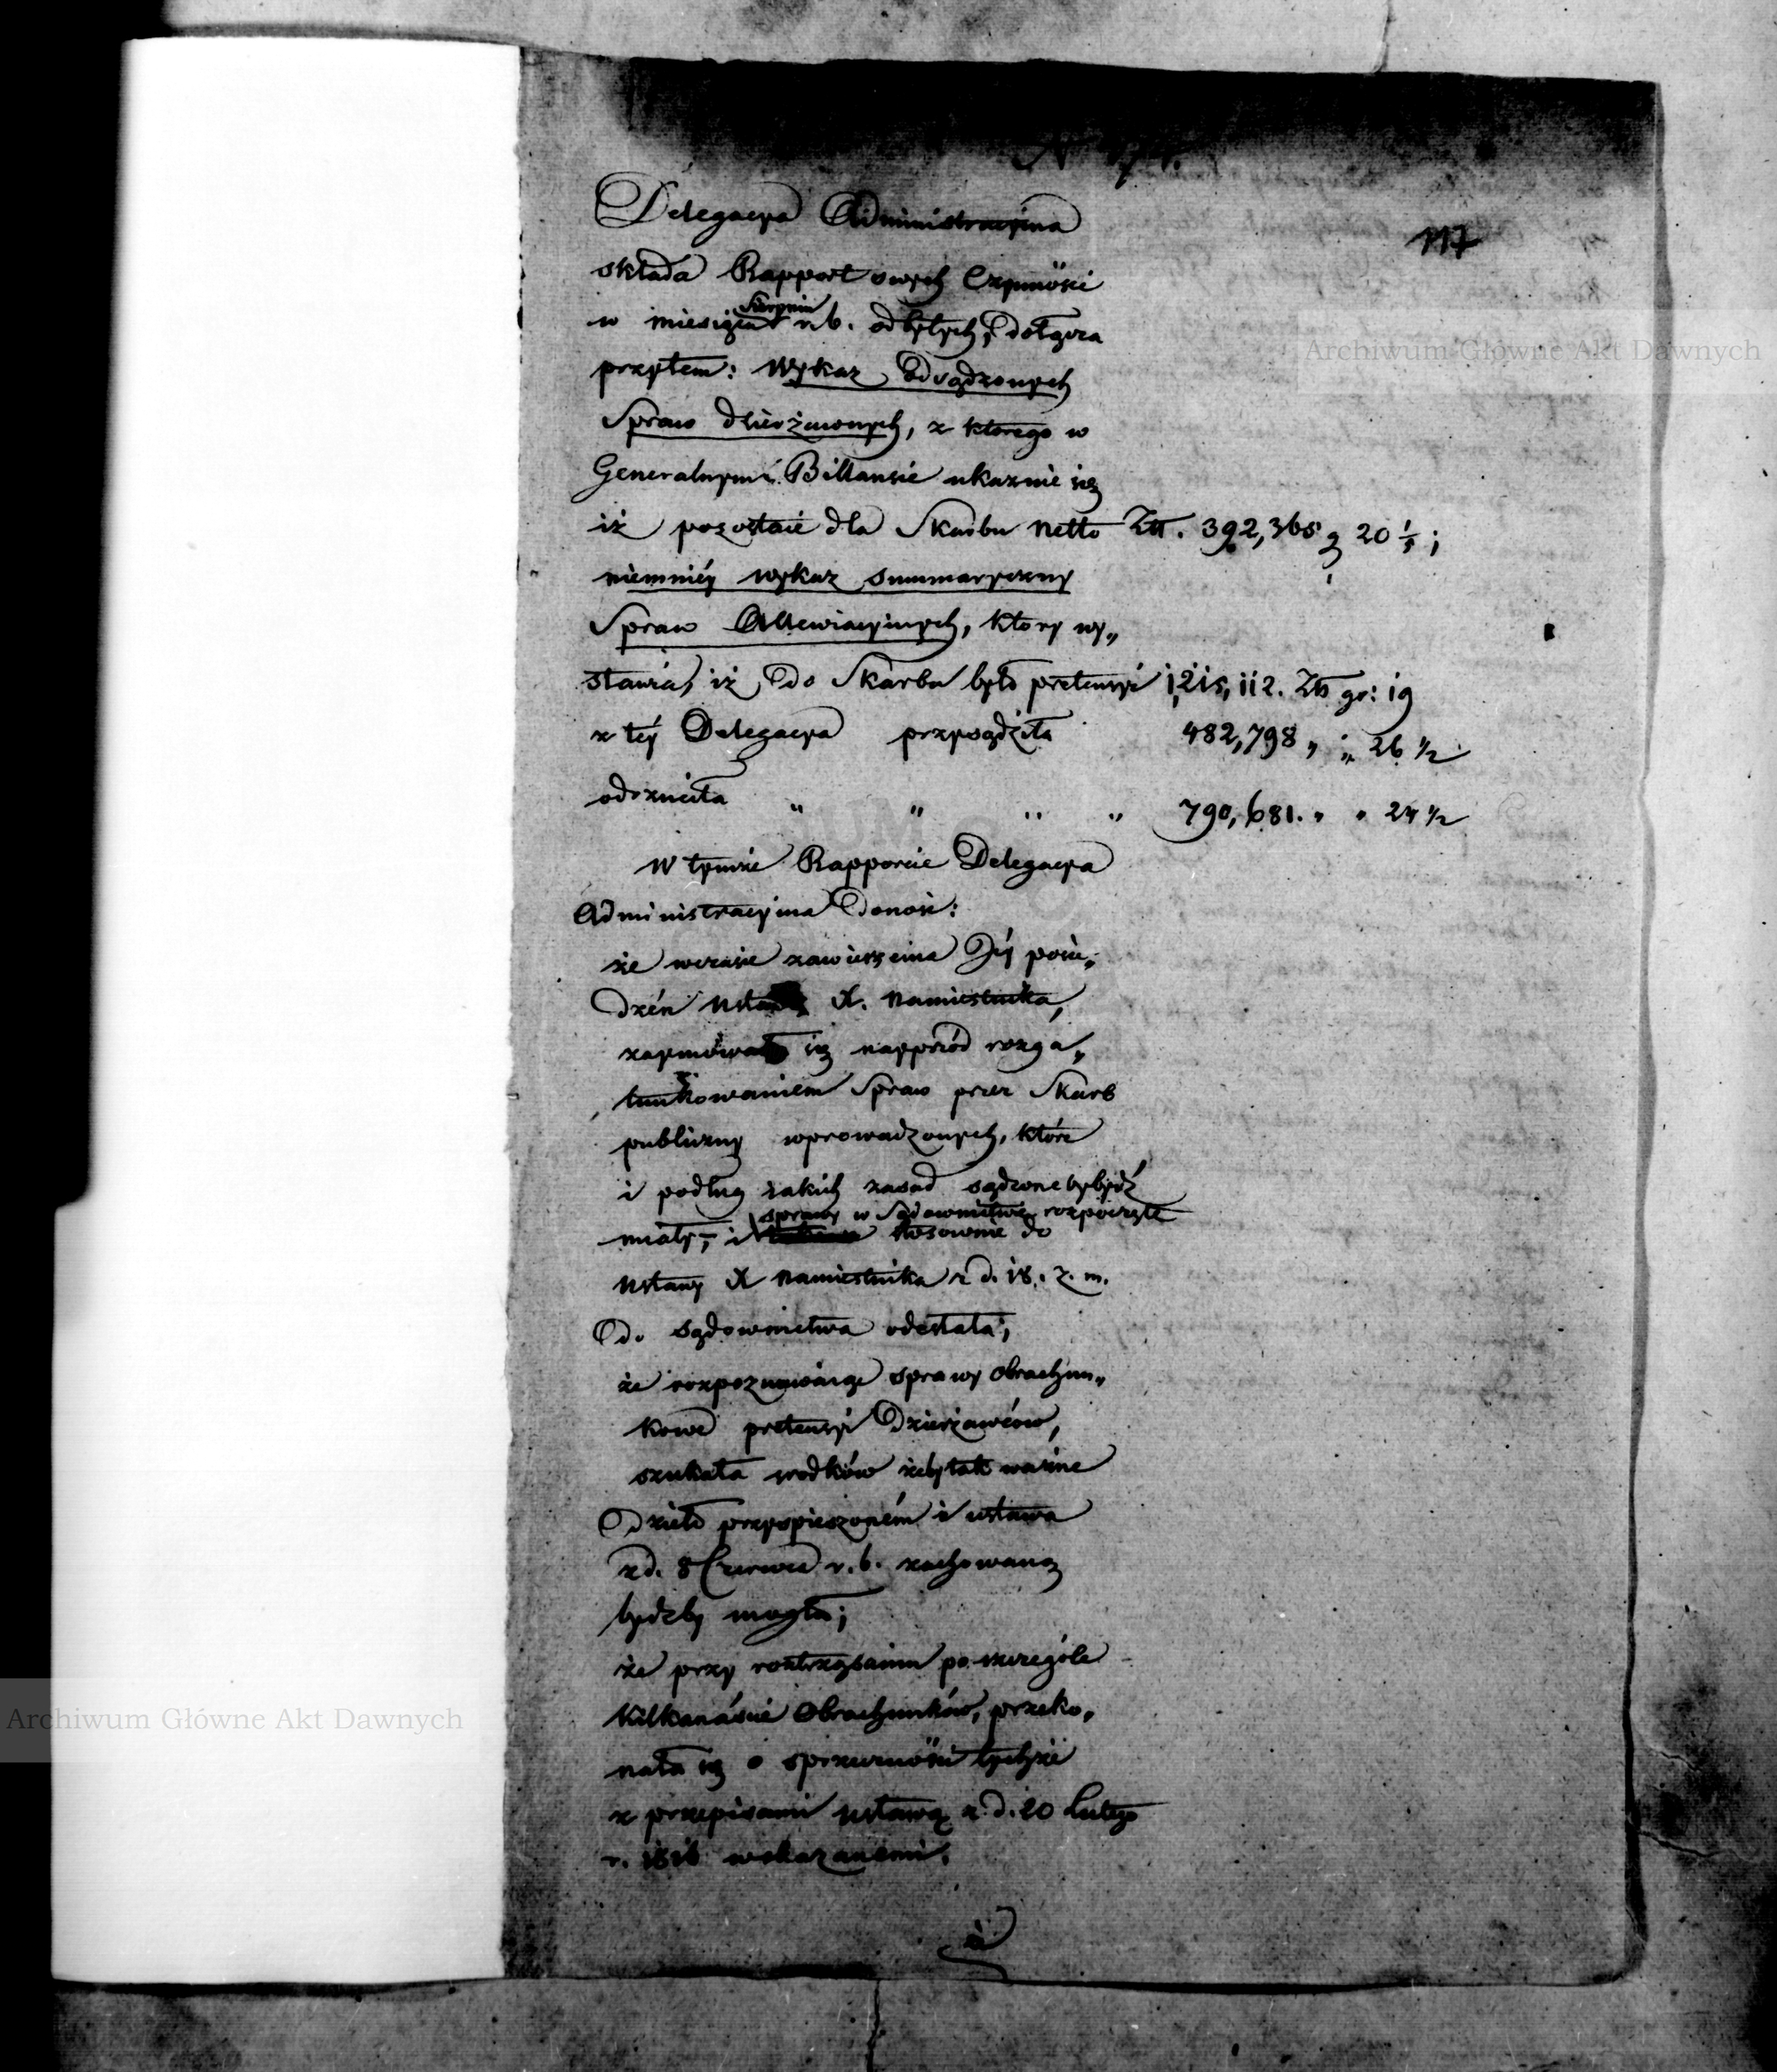 117
Delegacya Administracyina
składa Rapport swych Czynności
w miesiącu Sierpniu r.b. odbytych; dołącza
przytem: Wykaz Odsądzonych
Spraw dzierżawnych, z ktorego w
Generalnym Billansie ukazuie się
iż pozostaie dla Skarbu netto Złł. 392,365 g 20 1/5;
niemniéy wykaz summaryczny
Spraw Allewiacyinych, ktory wy„
stawia, iż do Skarbu było pretensyi 1,215,112. Złł gr: 19
z téy Delegacya przysądziła 482,798 „ „ 26 1/2
odrzuciła „ „ „ „ 790,681. „ „ 24 1/2
W tymże Rapporcie Delegacya
Administracyina donosi:
że wczasie zawieszenia Jéy posie„
dzén X. Namiestnika,
zaymowała się nayprzód rozga„
tunkowaniem Spraw przez Skarb
publiczny wprowadzonych, które
i podług iakich zasad sądzone bydź
sprawy w Sądownictwie rozpoczęte
miały; i stosownie do
Ustawy X Namiestnika z d. 18. z. m.
do sądownictwa odesłała;
że rozpoznawaiąc sprawy Obrachun„
kowe pretensyi Dzierżawców,
szukała srodków żeby tak ważne
Dzieło przyspieszoném i ustawa
z d. 8 Czerwca r.b. zachowaną
bydźby mogła;
że przy roztrząsaniu po szczególe
kilkanaście Obrachunków, przeko„
nała się o sprzeczności tychże
z przepisami ustawą z d. 20 Lutego
r. 1816 wskazanemi.
że
Archiwum Główne Akt Dawnych
Archiwum Główne Akt Dawnych